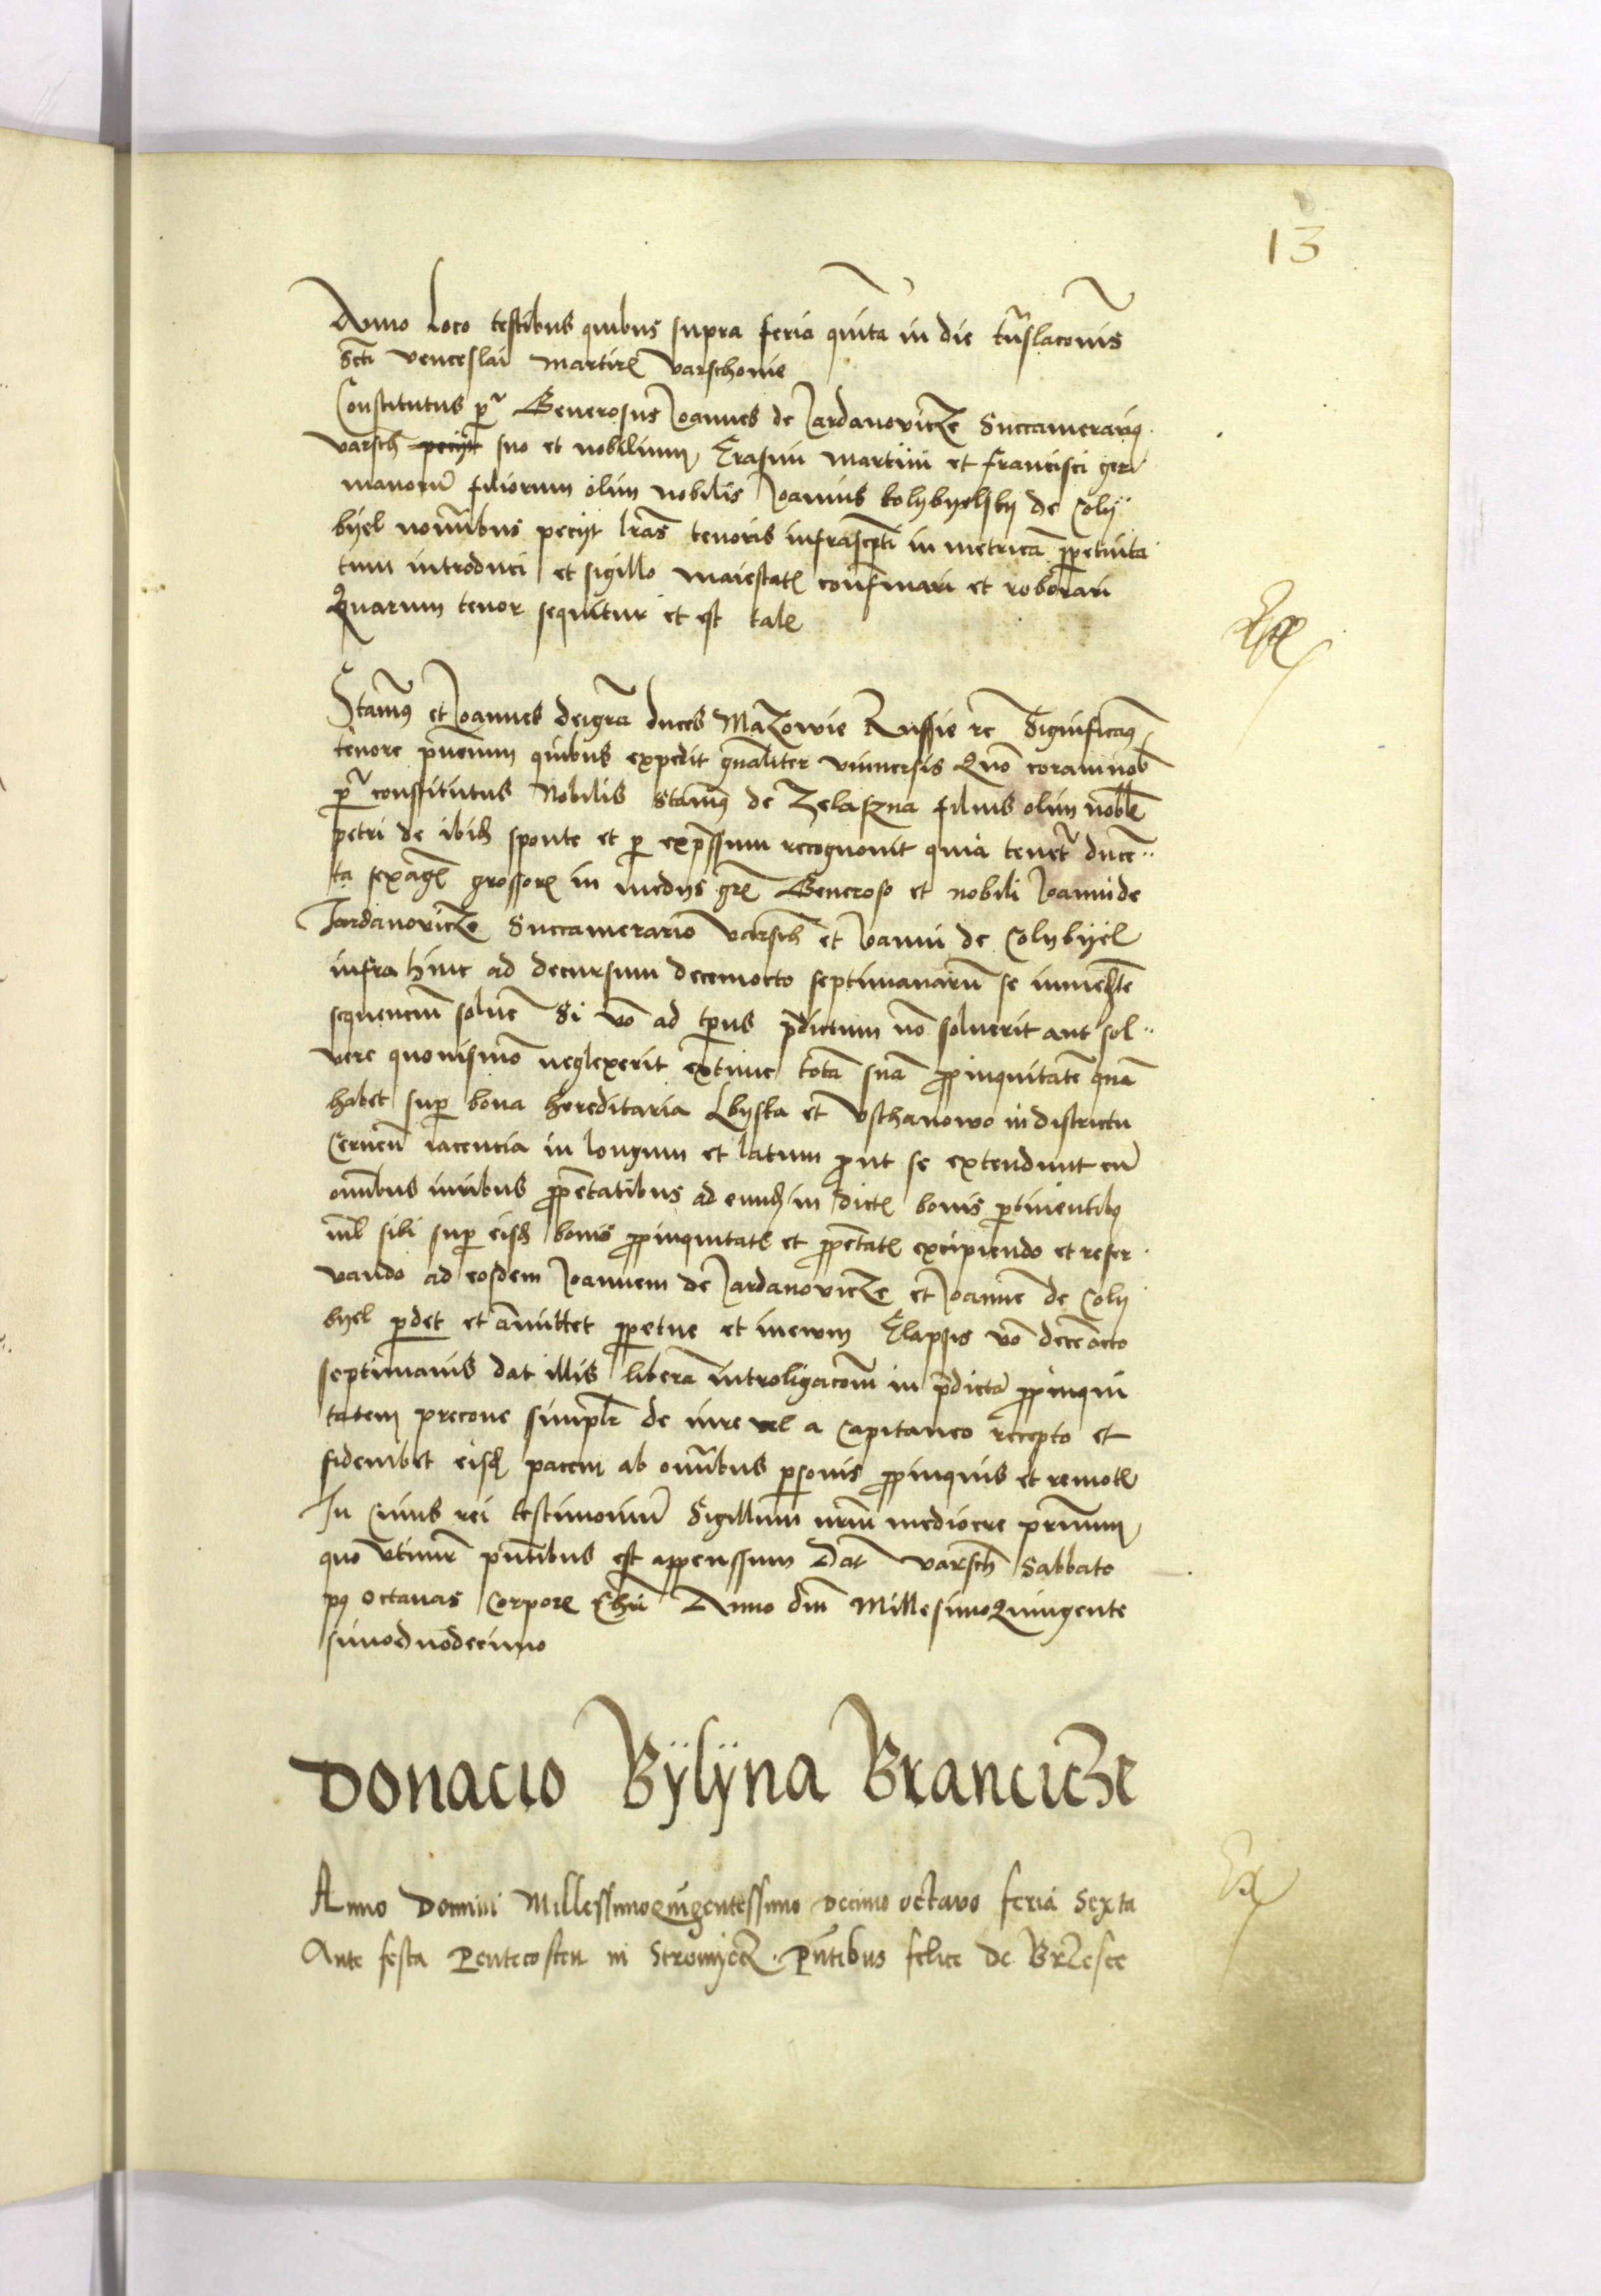 13
Anno loco testibus quibus supra feria quinta in die trãslacõnis
Scti Venceslai martir̃ Varschovie
Constitutus pr̃ Generosus Joannes de Jardanovicze Succamerariꝰ
Varsch̃ pecijt suo et nobilium Erasmi Martini et Francisci ger
manorũ filiorum olim nobilis Joannis Kolybyelsky de Coly
byel noĩbus pecijt lrãs tenoris infrascpti in metricã ꝑpetuita
tum introduci et sigillo maiestatꝭ confirmari et roborari
Quarum tenor sequitur et est talꝭ
Stanisꝰ et Joannes deigrã duces Mazowie Russie rc̃ Significamꝰ
tenore pñcium quibus expedit gñaliter vniuersis Quõ coram nob̃
pr̃ constitutus Nobilis Stanisꝰ de Zelasna filius olim nobl̃
petri de ibidꝫ sponte et ꝑ expssum recognouit quia tenetr̃ ducẽ
ta sexagꝭ grossorꝭ in medijs grꝭ Generoso et nobili Joanni de
Jardanovicze Succamerario Varsch̃ et Joanni de Colybyel
infra hinc ad decursum decemocto septimanarũ se immedte
sequencium soluẽ Si võ ad tp̃us pdictum nõ soluerit aut sol
vere quouismõ neglexerit extunc totã suã ꝓpinquitatẽ quã
habet suꝑ bona hereditaria Lbyska et Vschanowo in districtu
Cerneñ iacentia in longum et latum ꝓut se extendunt cũ
oĩbus iuribus ꝓpetatibus ad eundꝫ in dictꝭ bonis ꝑtinentibꝰ
nil̃ sibi suꝑ eisdꝫ bonis ꝓpinquitatꝭ et ꝓpetatꝭ excipiendo et reser
vando ad eosdem Joannem de Jardanovicze et Joannẽ de Coly
byel ꝑdet et amittet ꝑpetue et in ewm Elapsis võ decẽocto
septimanis dat illis liberã introligacõm in pdictã ꝓpinqui
tatem precone simpl̃r de iure vel a Capitaneo recepto et
fideiubet eisdꝫ pacem ab oĩbus ꝑsonis ꝓpinquis et remotꝭ
In Cuius rei testimoniũ Sigillum nrũm mediocre pñum
quo vtimr̃ pñtibus est appenssum Dat̃ Varsch̃ Sabbato
pꝰ octauas Corporꝭ Chri Anno dnĩ MillesimoQuingente
simoduodecimo
Donacio Bÿlÿna Brancicze
Anno Domini Millessimoqũgentessimo decimo octavo feria Sexta
Ante festa Pentecosten in Stromyecz pñtibus felice de Brzesce